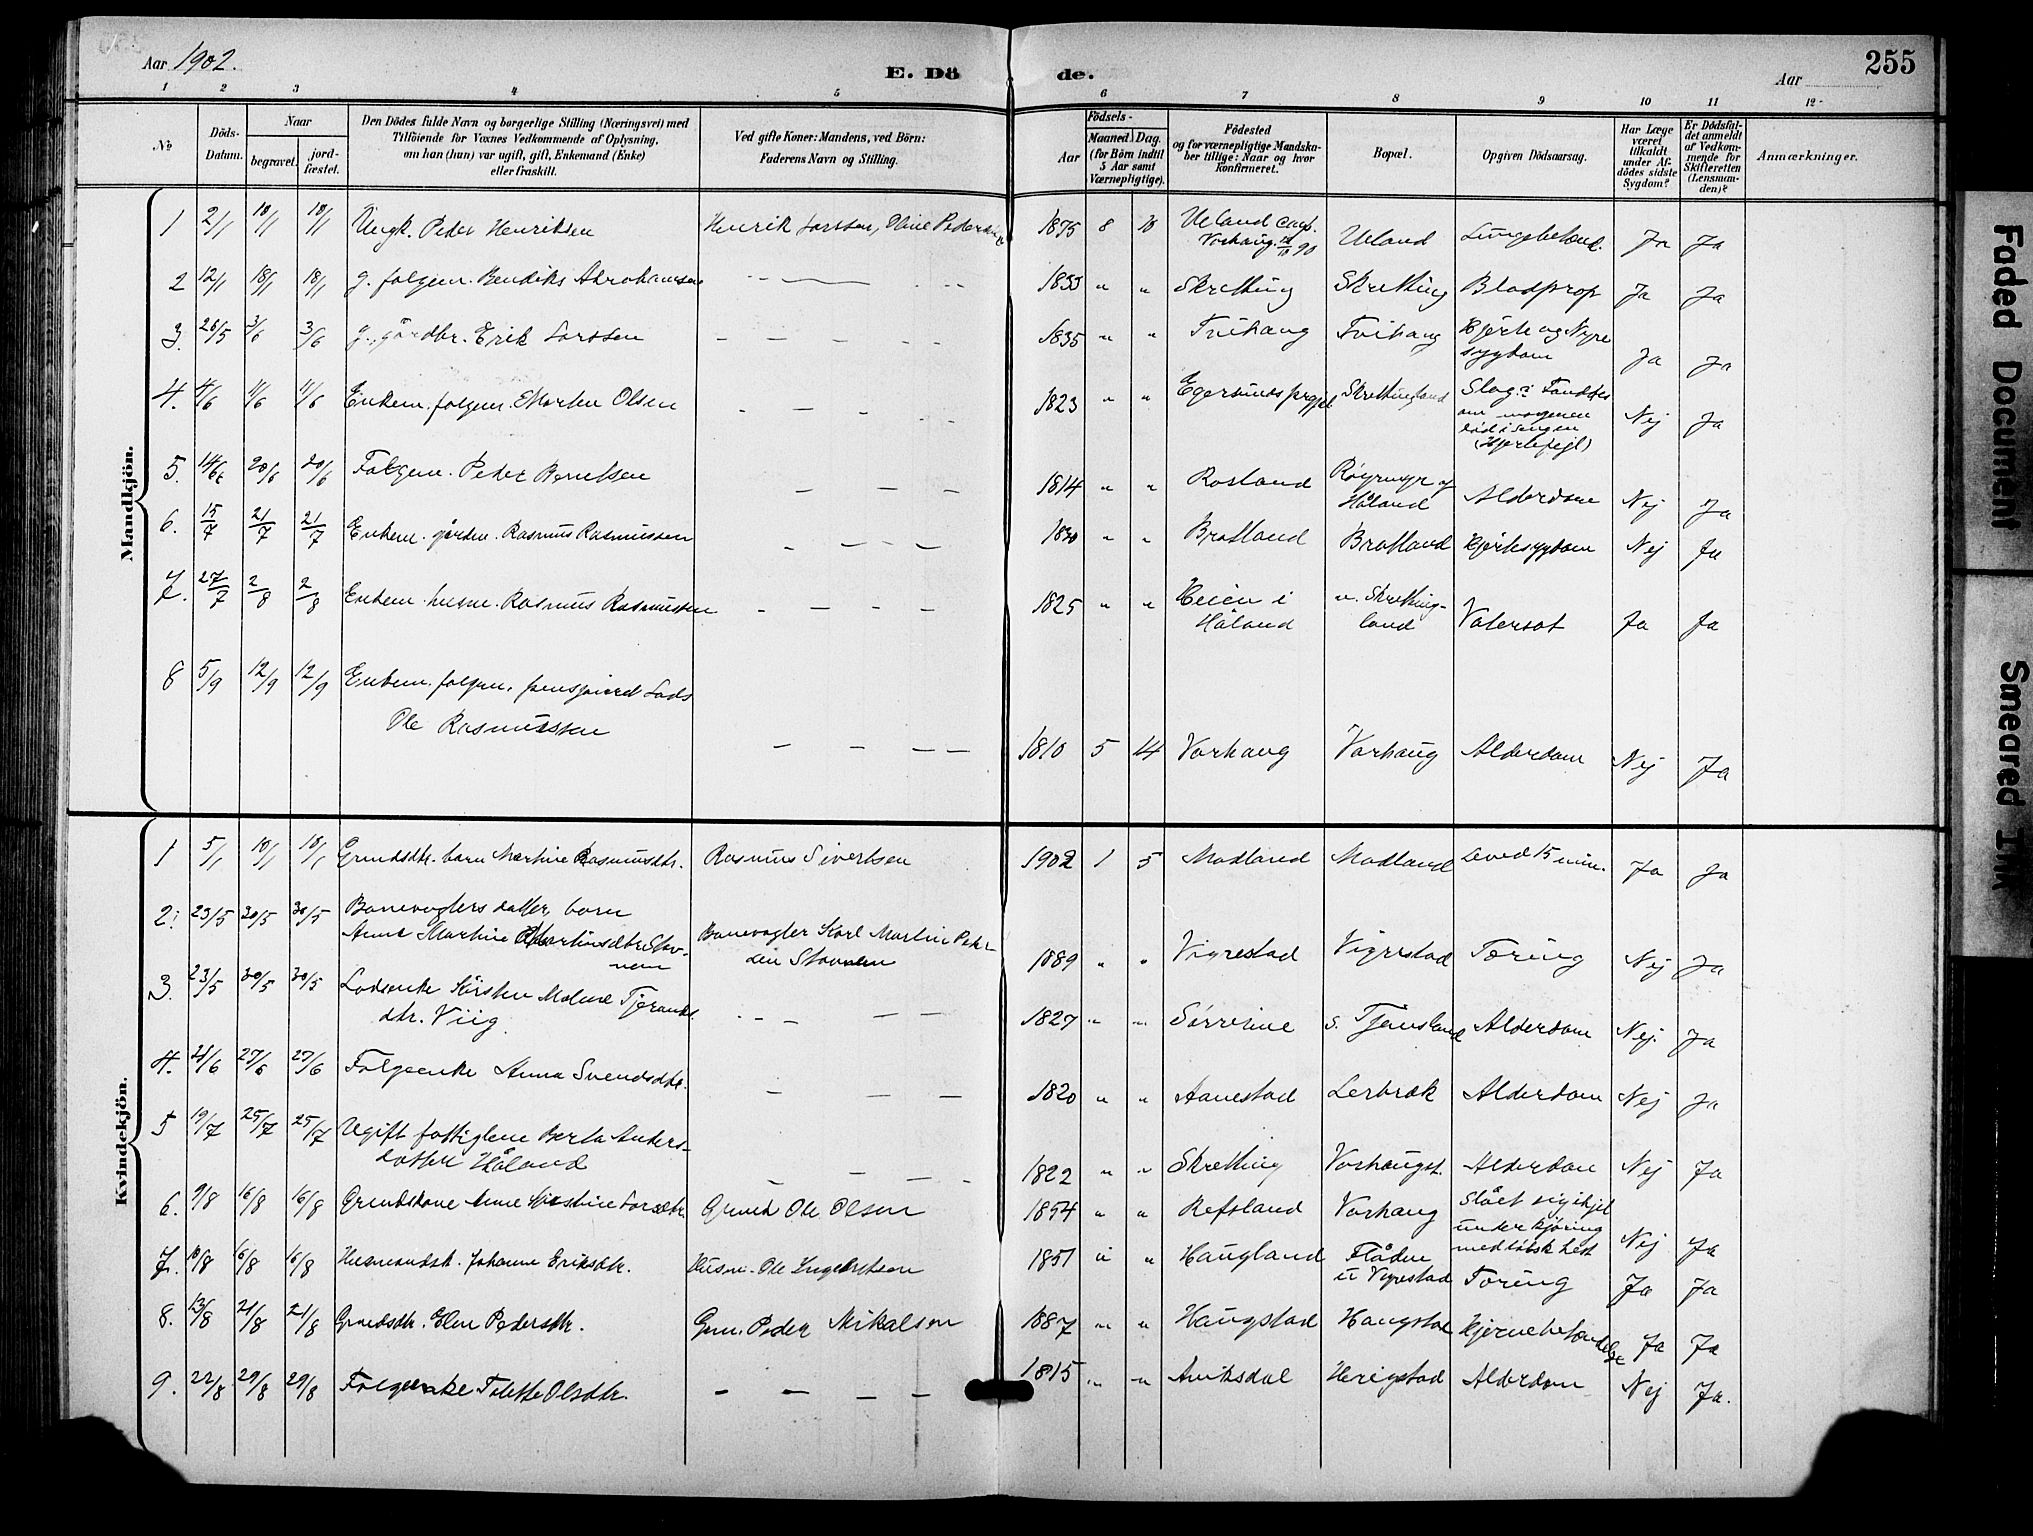 Aar 1902.
E. Dö de.
Aar
255
1 2 3 4 5 6 7 8 9 10 11 12
No
Döds-Datum.
Naar
begravet.
jord-fæstet.
Den Dödes fulde Navn og borgerlige Stilling (Næringsvei) med
Tilföiende for Voxnes Vedkommende af Oplysning,
om han (hun) var ugift, gift, Enkemand (Enke)
eller fraskilt.
Ved gifte Koner: Mandens, ved Börn:
Faderens Navn og Stilling.
Födsels-
Aar
Maaned Dag.
(for Börn indtil
5 Aar samt
Værnepligtige).
Födested
og for værnepligtige Mandska-
ber tillige: Naar og hvor
konfirmeret.
Bopæl.
Opgiven Dödsaarsag.
Har Læge
været
tilkaldt
under Af-
dödes sidste
Sygdom?
Er Dödsfal-
det anmeldt
af Vedkom-
mende for
Skifteretten
(Lensman-
den)?
Anmærkninger.
Mandkjön.
1 2/1 10/1 10/1 Ungk. Peder Henriksen Henrik Larssen, Oline Pedersd. 1875 8 10 Ueland conf. Varhaug 90 Ueland Lungebetænd. Ja Ja
2 12/1 18/1 18/1 g. folgem. Bendiks Abrahamsen 1833 " " Skretting Skretting Blodprop Ja Ja
3. 26/5 3/6 3/6 g. gårdbr. Erik Larssen 1835 " " Tvihaug Tvihaug Hjerte og Nyre
sygdom Ja Ja
4. 4/6 11/6 11/6 Enkem. folgem. Morten Olsen 1823 " " Egersunds prgjel Skrettingland Slag? Fandtes
om morgenen
död i sengen
(Hjertefejl) Nej Ja
5. 14/6 20/6 20/6 Folgem. Peder Berntsen 1814 " " Rosland
Håland Alderdom Nej Ja
6. 15/7 21/7 21/7 Enkem. gårdm. Rasmus Rasmussen 1830 " " Bratland Bratland Hjertesygdom Nej Ja
7. 27/7 2/8 2/8 Enkem. husm. Rasmus Rasmussen 1825 " " Heien i
Håland n. Skretting-
land Vatersot Ja Ja
8 5/9 12/9 12/9 Enkem. folgem. pensjoneret Lods
Ole Rasmussen 1810 5 14 Varhaug Varhaug Alderdom Nej Ja
Kvindekjön.
1 5/1 10/1 10/1 Grmdsdtr. barn Martine Rasmusdtr. Rasmus Sivertsen 1902 1 5 Madland Madland Leved 15 min. Ja Ja
2. 23/5 30/5 30/5 Banevogters datter, barn
Anna Martine Stav-
nem Banevogter Karl Martin Peder-
sen Stavnem 1889 " " Vigrestad Vigrestad Tæring Nej Ja
3. 23/5 30/5 30/5 Lodsenke Kirsten Malene Tjerands
dtr. Viig. 1827 " " Sirevaag s. Tjemsland Alderdom Nej. Ja
4. 21/6 27/6 27/6 Folgeenke Anna Svendsdtr. 1820 " " Aanestad Lerbræk Alderdom Nej Ja
5 19/7 25/7 25/7 Ugift fattiglem Berta Anders-
datter Håland 1822 " " Skretting Varhaugst. Alderdom Nej Ja
6. 9/8 16/8 16/8 Grmdskone Anne Kirstine Larsdtr. Grmd Ole Olsen 1854 " " Refsland Varhaug Slået sig ihjel
under kjøring
med løbsk hest Nej Ja
7. 10/8 16/8 16/8 Husmandsk. Johanne Eriksdtr. Husm. Ole Ingebretsen 1851 " " Haugland Flåden
u Vigrestad Tæring Ja Ja
8. 13/8 21/8 21/8 Grmdsdtr. Elen Pedersdtr. Grm. Peder Mikalsen 1887 " " Haugstad Haugstad Hjernebetændelse Ja Ja
9. 22/8 29/8 29/8 Folgeenke Tolette Olsdtr. 1815 " " Aniksdal Herigstad Alderdom Nej Ja.
Faded Document
Smeared Ink